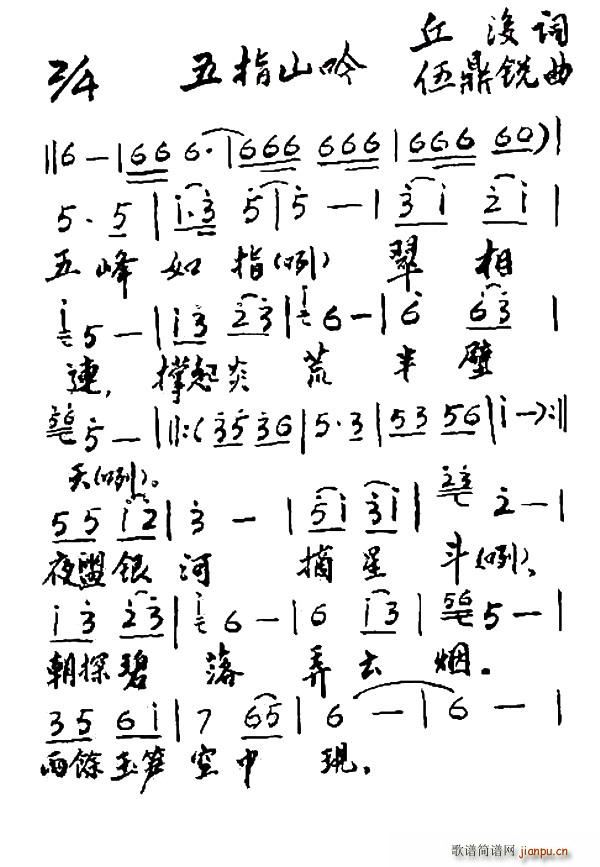 2/4 五指山吟 丘浚词
伍鼎铣曲
‖6 - | 666 6· | 666 666 | 666 60) |
5·5 | i·3 5 | 5 - | 3i 2i |
五峰如指(咧) 翠相
i 5 - | i3 23 | i 6 - | 6 63 |
連,撐起炎荒半壁
56 5 - | ‖:(3536 | 5·3 | 53 56 | i -):‖
天(咧)。
55 i2 | 3 - | 5i 3i | 23 2 - |
夜盥银河 摘星斗(咧)、
i3 23 | i 6 - | 6 i3 | 56 5 - |
朝探碧落弄云烟。
35 6i | 7 65 | 6 - | 6 - |
雨餘玉笋空中現,
歌谱简谱网
jianpu.cn